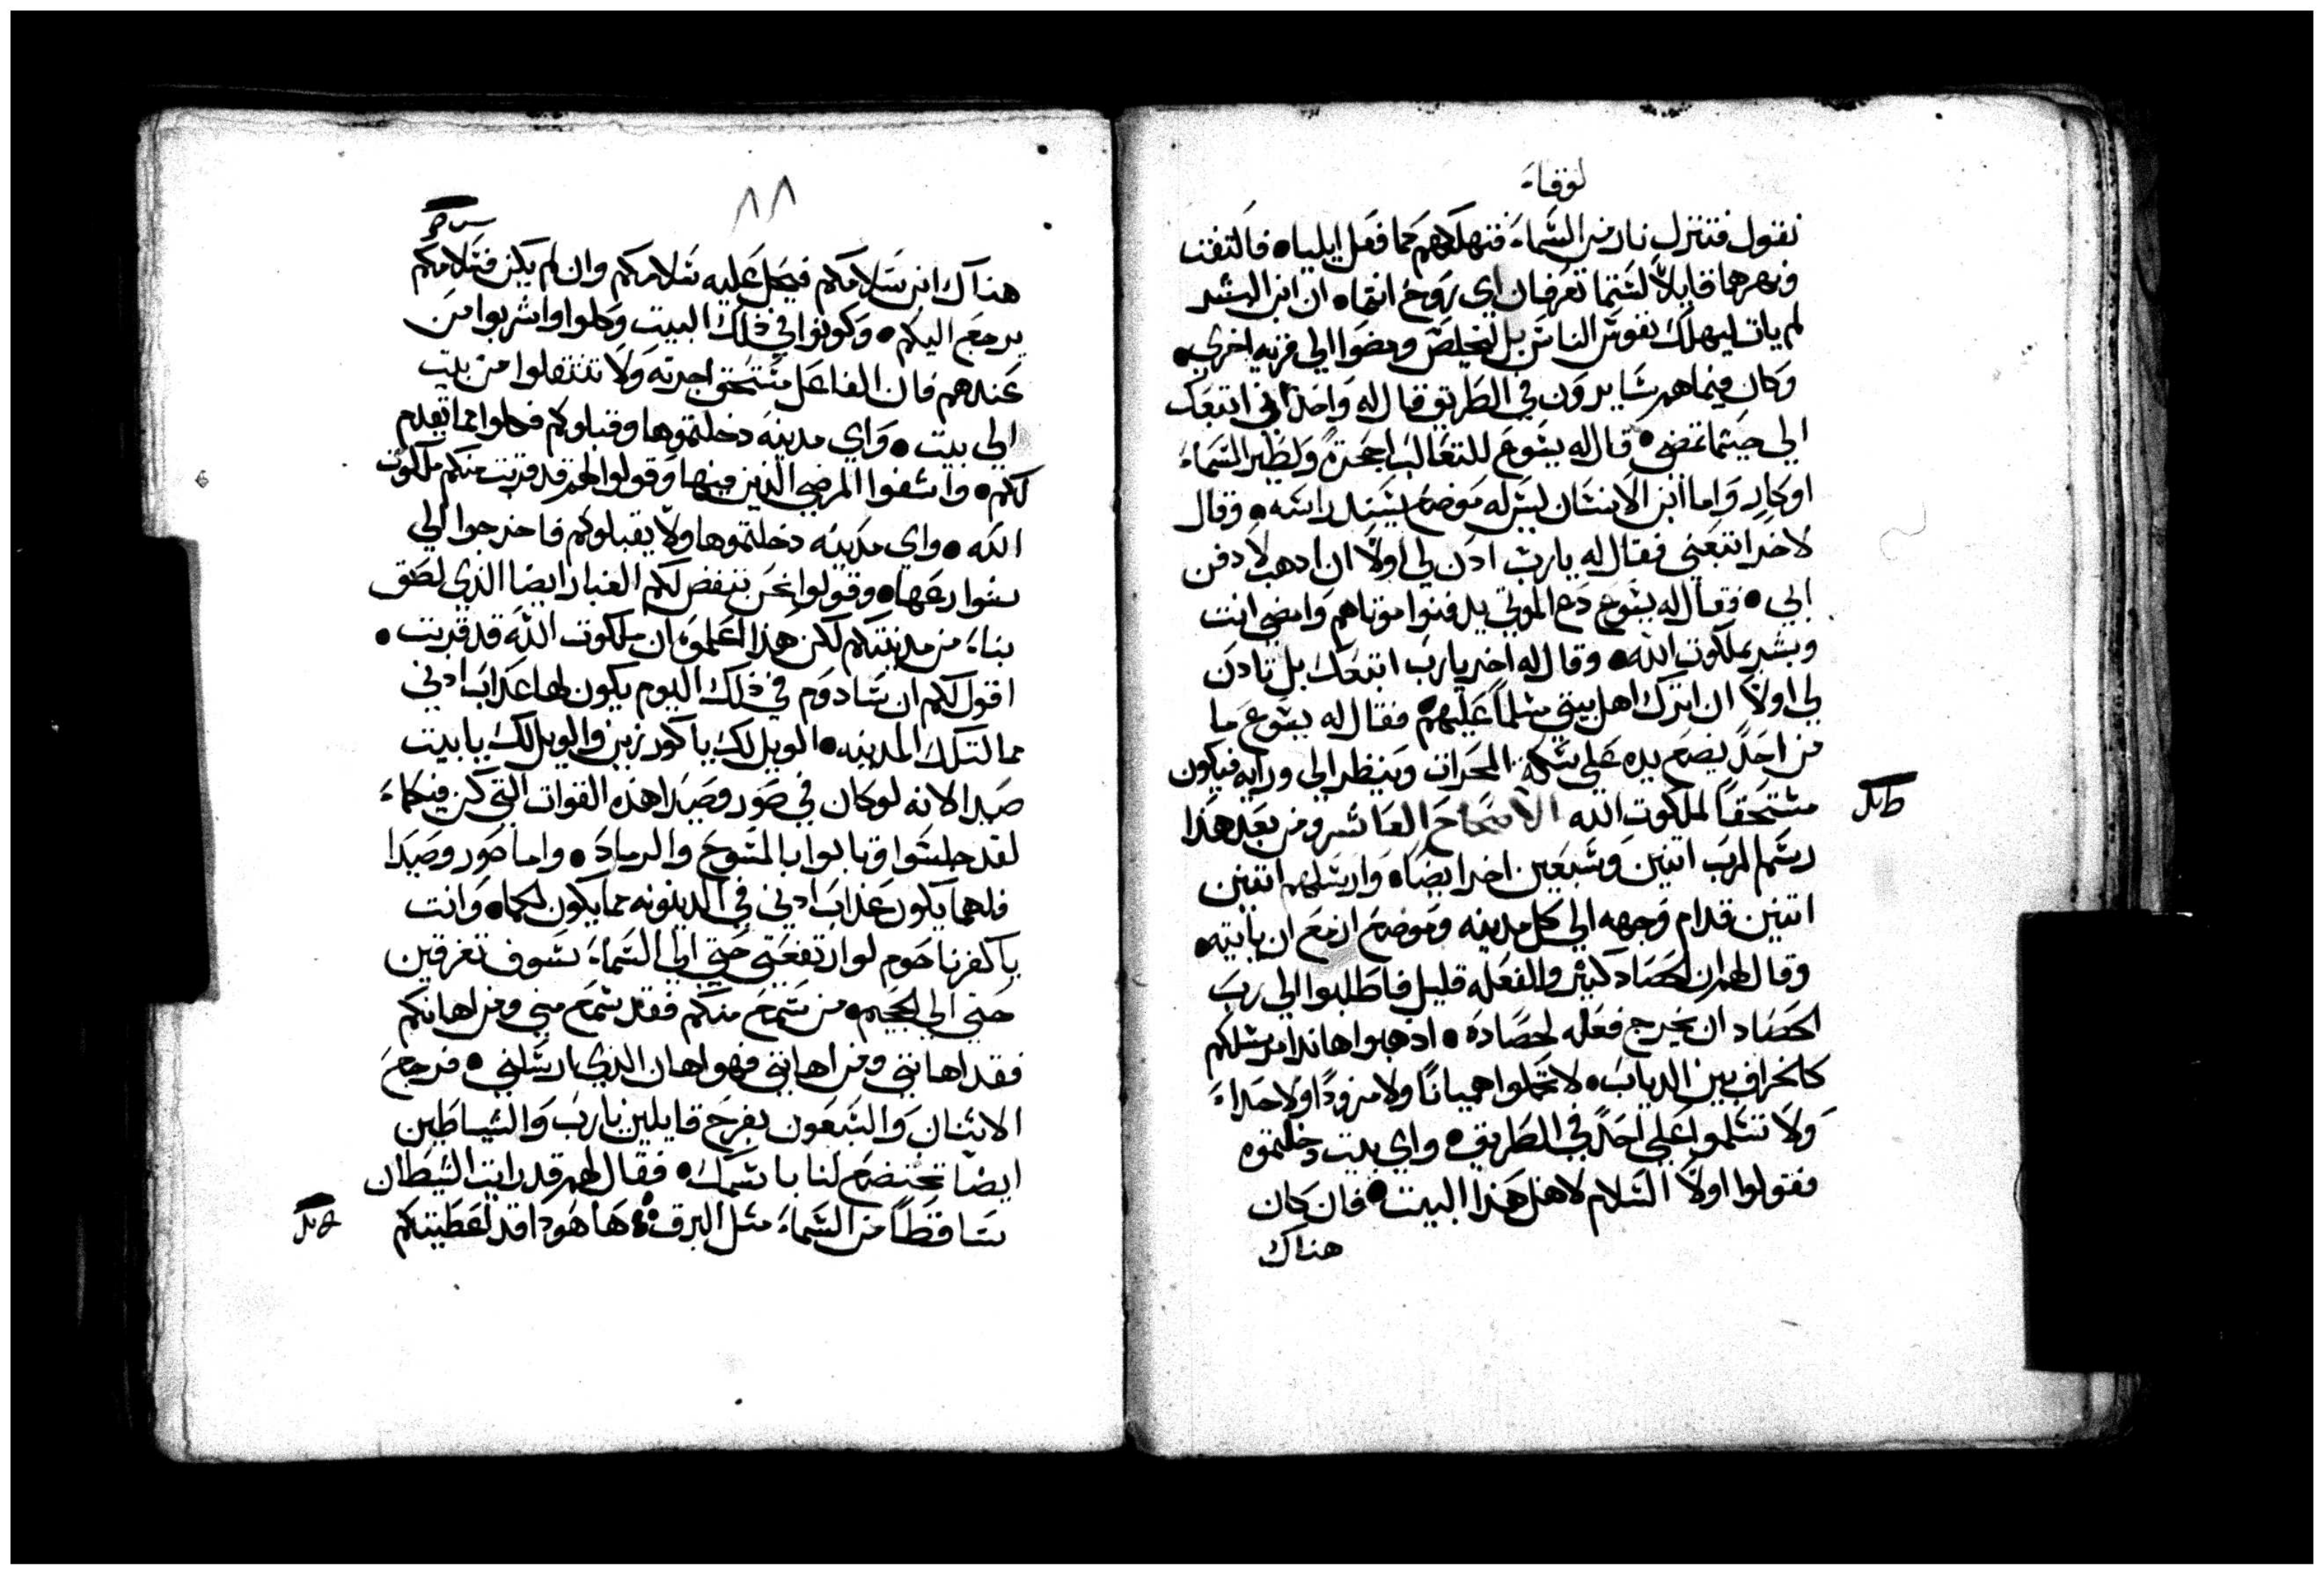 لوقا
نقول فتنزل نار من السماء فتهلكهم كما فعل ايليا • فالتفت
ونهرهما قايلاً لستما تعرفان اي روح انتما • ان ابن البشر
لم يات ليهلك نفوس الناس بل ليخلص ومضوا الي قريه اخري •
وكان فيما هم سايرون في الطريق قال له واحد اني اتبعك
الي حيثما تمضي • قال له يسوع للثعالب اجحرة ولطير السماء
اوكار واما ابن الانسان ليس له موضع يسند راسه • وقال
لاخر اتبعني فقال له يارب ادن لي اولاً ان ادهب لادفن
ابي • فقال له يسوع دع الموتي يدفنوا موتاهم وامضي انت
وبشر بملكوت الله • وقال له اخر يارب اتبعك بل تادن
لي اولاً ان اترك اهل بيتي مسلماً عليهم • فقال له يسوع ما
من احد يضع يده علي سكة المحراث وينظر الي ورايه فيكون
مستحقاً لملكوت الله الاصحاح العاشر ومن بعد هذا
رسم الرب اتنين وسبعين اخر ايضا • وارسلهم اتنين
اتنين قدام وجهه الي كل مدينه وموضع ازمع ان ياتيه •
وقال لهم ان الحصاد كثير والفعله قليل فاطلبوا الي رب
الحصاد ان يخرج فعله لحصاده • ادهبوا هاندا مرسلكم
كالخراف بين الدياب • لا تحملوا هميانا ولا مزودًا ولا حداء
ولا تسلموا علي احد في الطريق • واي بيت دخلتموه
فقولوا اولاً السلام لاهل هذا البيت • فان كان
هناك
٨٨
هناك ابن سلامكم فيحل عليه سلامكم وان لم يكن فسلامكم
يرجع اليكم • وكونوا في ذلك البيت وكلوا واشربوا من
عندهم فان الفاعل مستحق اجرته ولا تنتقلوا من بيت
الي بيت • واي مدينه دخلتموها وقبلوكم فكلوا مما يقدم
لكم • واشفوا المرضي الذين فيها وقولوا لهم قد قربت منكم ملكوت
الله • واي مدينه دخلتموها ولا يقبلوكم فاخرجوا الي
شوارعها • وقولوا نحن ننفض لكم الغبار ايضا الذي لصق
بنا من مدينتكم لكن هذا اعلموه ان ملكوت الله قد قربت •
اقول لكم ان سادوم في ذلك اليوم يكون لها عذاب ادني
مما لتلك المدينه • الويل لك يا كورزين والويل لك يا بيت
صيدا لانه لو كان في صور وصيدا هذه القوات التي كن فيكما
لقد جلسوا وتابوا بالمسوح والرماد • واما صور وصيدا
فلهما يكون عذاب ادني في الدينونه مما يكون لكما • وانت
يا كفرناحوم لو ارتفعتي حتي الي السماء سوف تغرقين
حتي الي الجحيم • من سمع منكم فقد سمع مني ومن اهانكم
فقد اهانني ومن اهانني فهو اهان الذي ارسلني • فرجع
الاثنان والسبعون بفرح قايلين يارب والشياطين
ايضا تختضع لنا باسمك • فقال لهم قد رايت الشيطان
ساقطاً من السماء مثل البرق ها هودا قد اعطيتكم